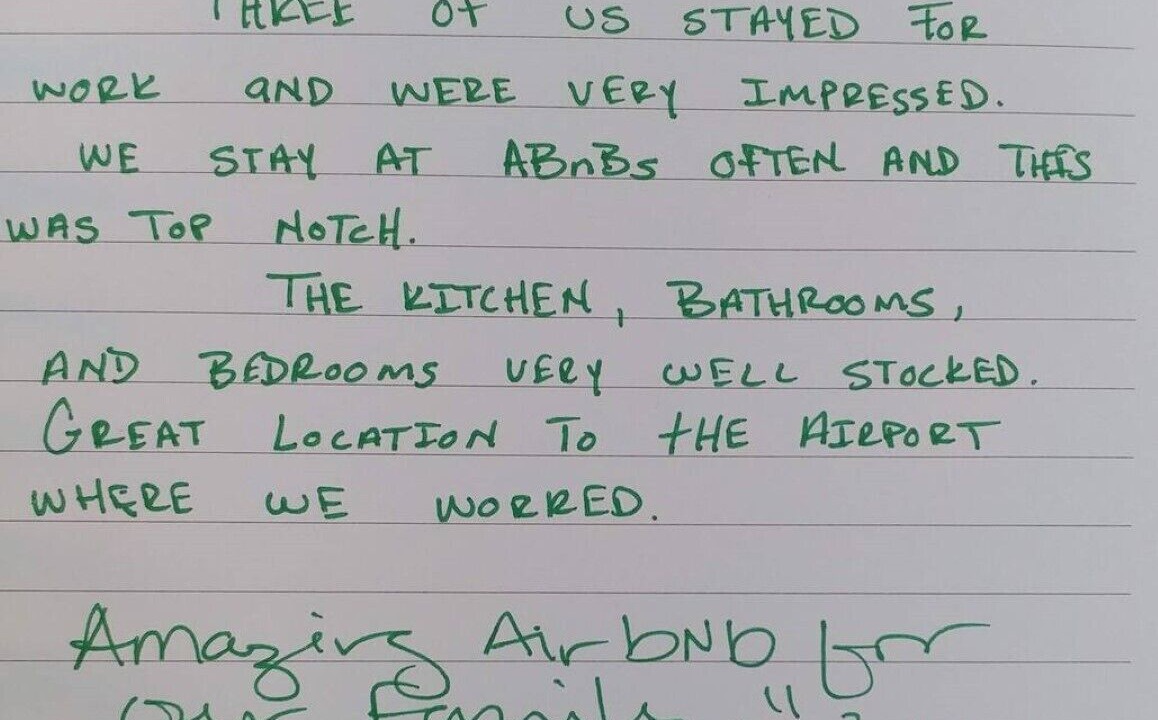 THREE OF US STAYED FOR
WORK AND WERE VERY IMPRESSED.
WE STAY AT ABnBs OFTEN AND THIS
WAS TOP NOTCH.
THE KITCHEN, BATHROOMS,
AND BEDROOMS VERY WELL STOCKED.
GREAT LOCATION TO tHE AIRPORT
WHERE WE WORKED.
Amazing AirbNb for
our Family